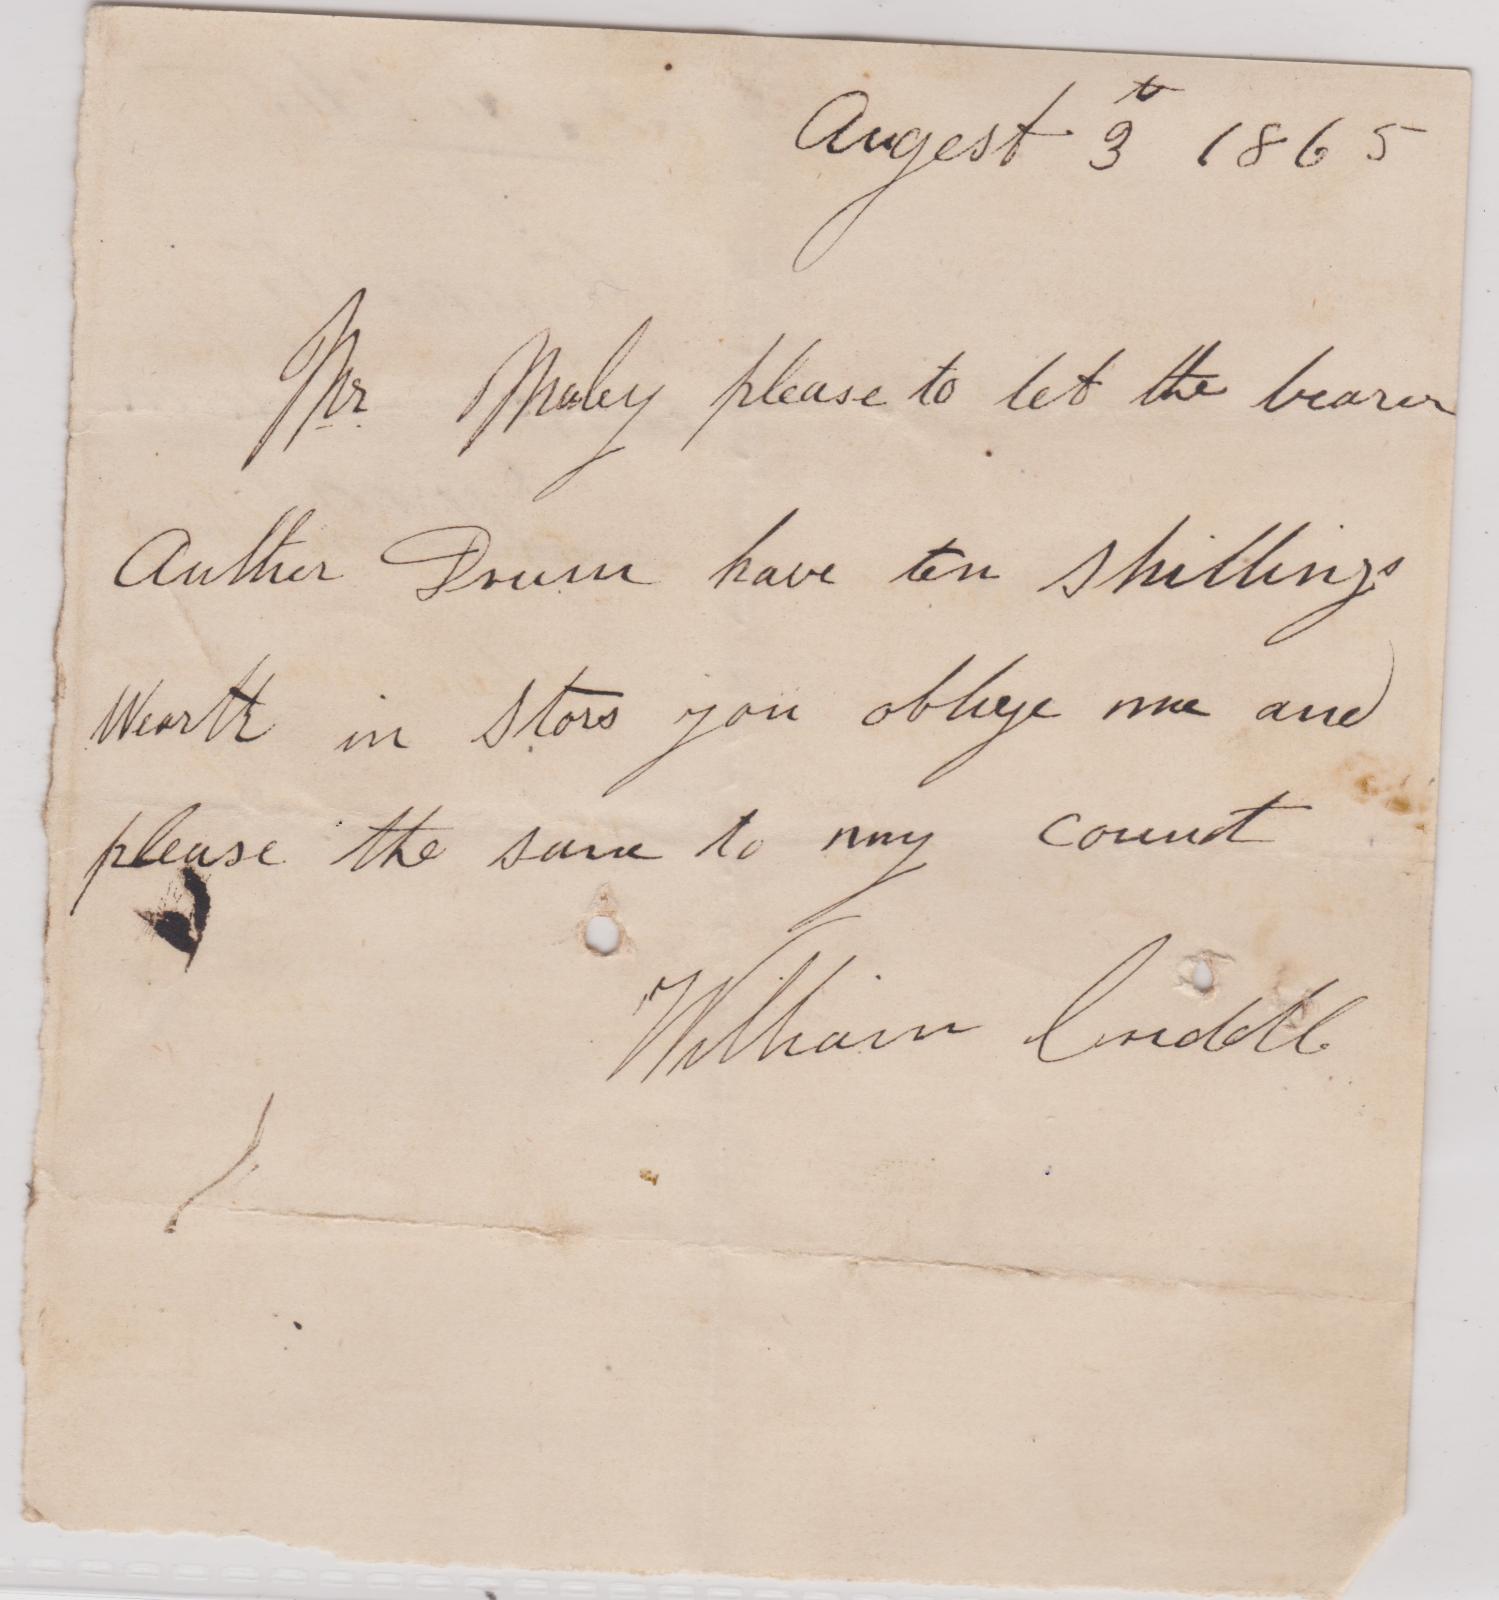 Augest 3th 1865
Mr. Maley please to let the bearer
Auther Drum have ten shillings
Wearth in Stors you oblige me and
please the same to my count
William